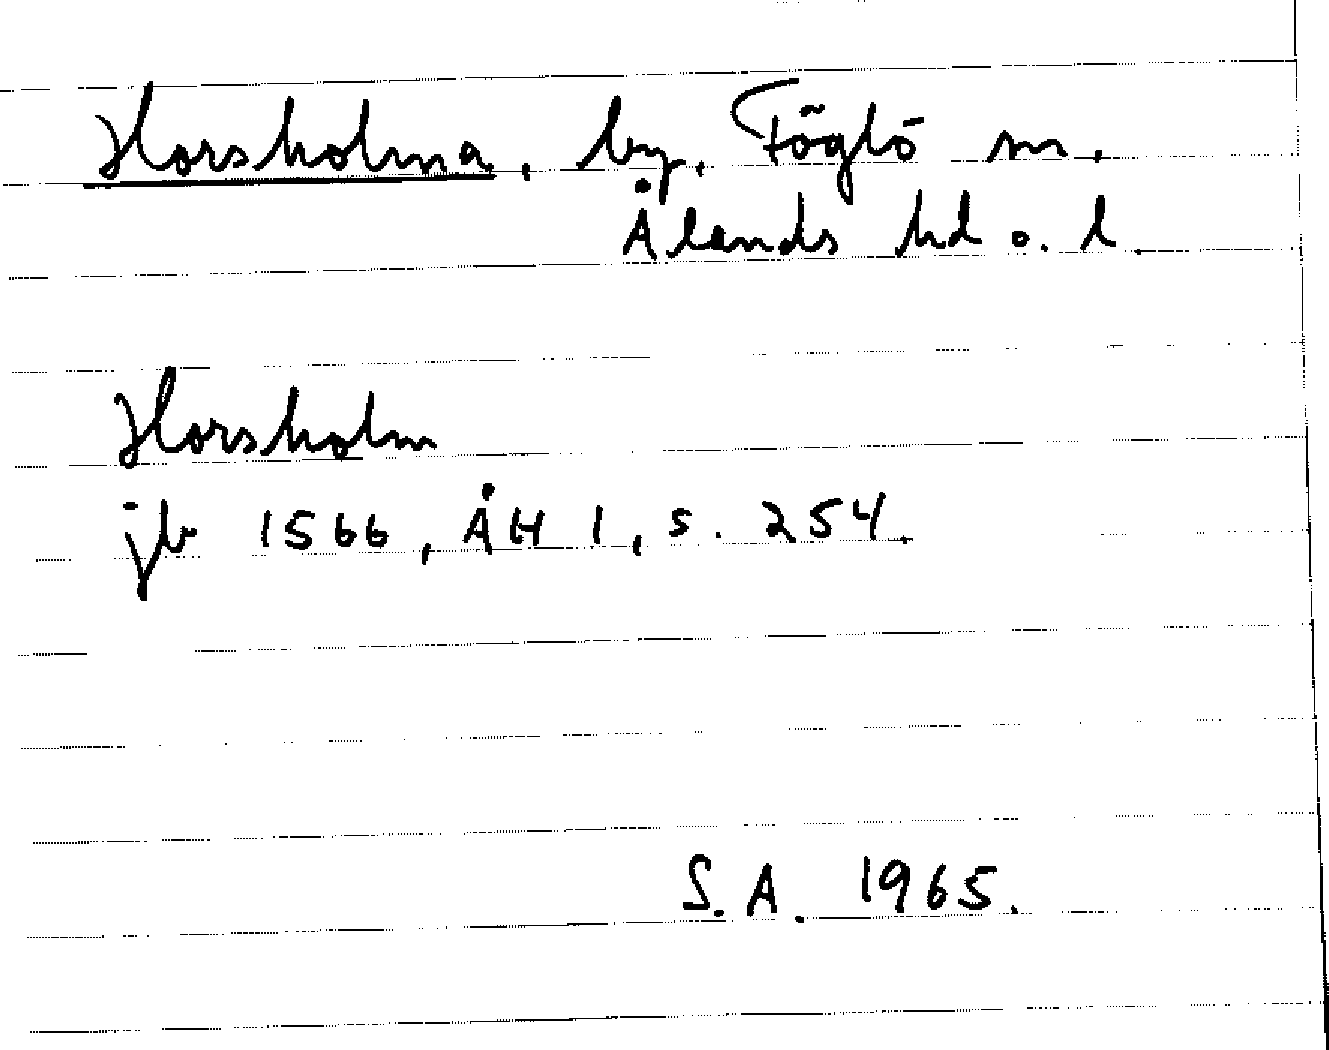 Horsholma, by, Föglö sn.
Ålands hd o. l.
Horsholm
jb 1566, ÅH 1, s. 254.
S.A. 1965.